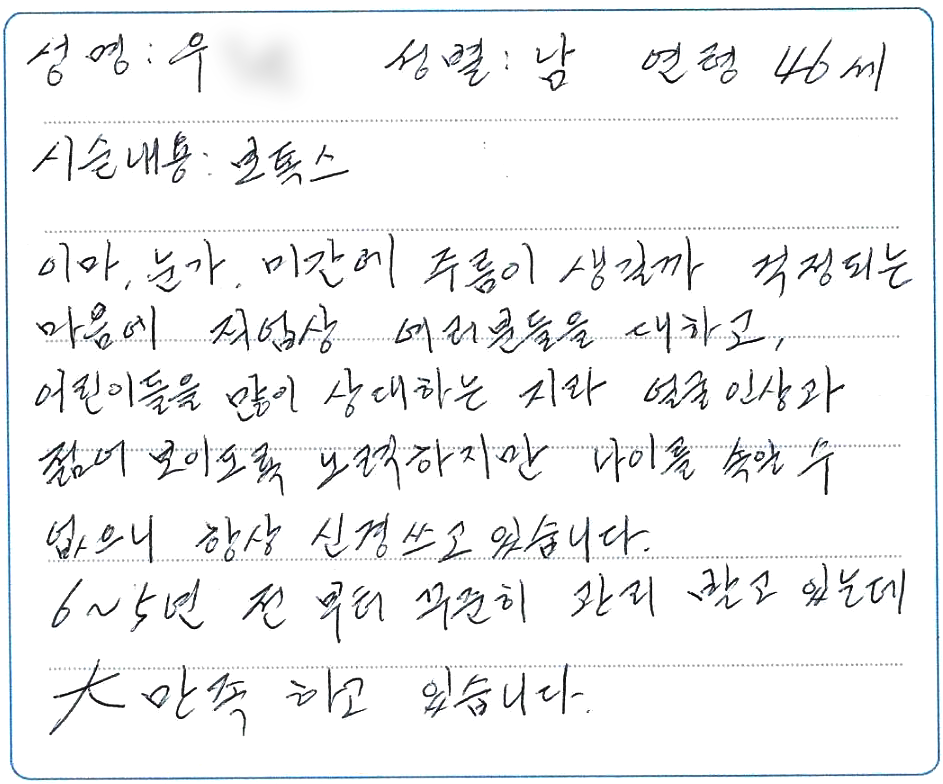 성명: 우 성별: 남 연령 46세
시술내용: 보톡스
이마, 눈가, 미간에 주름이 생길까 걱정되는
마음에 직업상 여러분들을 대하고,
어린이들을 많이 상대하는 지라 얼굴인상과
젊어 보이도록 노력하지만 나이를 속일 수
없으니 항상 신경쓰고 있습니다.
6~5년 전 부터 꾸준히 관리 받고 있는데
大만족 하고 있습니다.